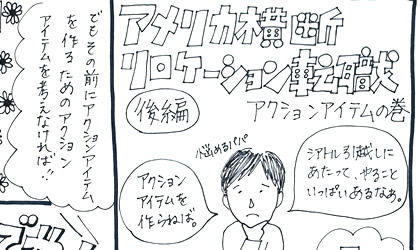 アメリカ横断
リロケーション転職
後編
アクションアイテムの巻
悩めるパパ
シアトル引越しに
あたって、やること
いっぱいあるなぁ。
アクション
アイテムを
作らねば。
でもその前にアクションアイテム
を作るためのアクション
アイテムを考えなければ!!